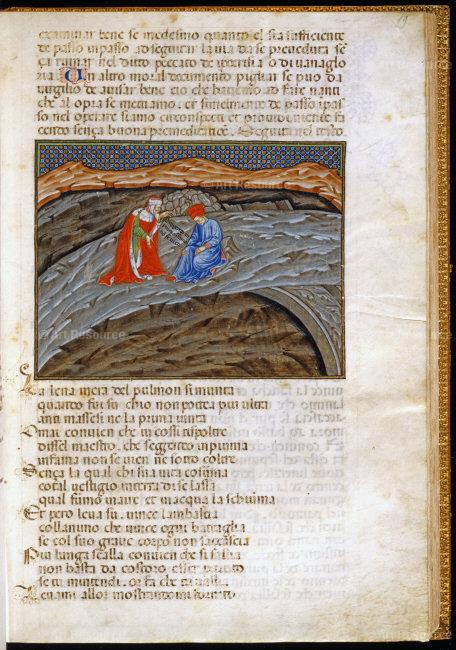 examinar bene se medesimo quanto el sia sufficiente
de passo in passo ad seguitar la via da se preveduta se
ça ruinar nel ditto peccato de
ria Un altro moral documento pigliar se puo da
virgilio de avisar bene cio che havemo ad fare nanti
che al opra se metiamo. et similmente de passo i pas
so nel operare siamo circonspecti et providi niente fa
cendo sença buona premeditatiōe. Seguita nel testo
La lena mera del pulmon si munta
quando fui su chio non potea piu ultra
anzi massesi ne la prima
Omai convien che tu cosi tispoltre
disse l maestro. che seggendo in piuma
in fama non se vien. ne sotto coltre
Sença la qual chi sua vita consuma
cotal vestigio in terra di se lassa
qual fummo in aere. et in acqua la schiuma
Et pero leva su. vince lambascia
coll animo che vince ogni battaglia
se col suo grave corpo non sacascia
Piu lunga scala convien che si saglia
non basta da costoro esser partito
se tu mintendi. or fa che ti vaglia
Levami allor mostrando mi fornito